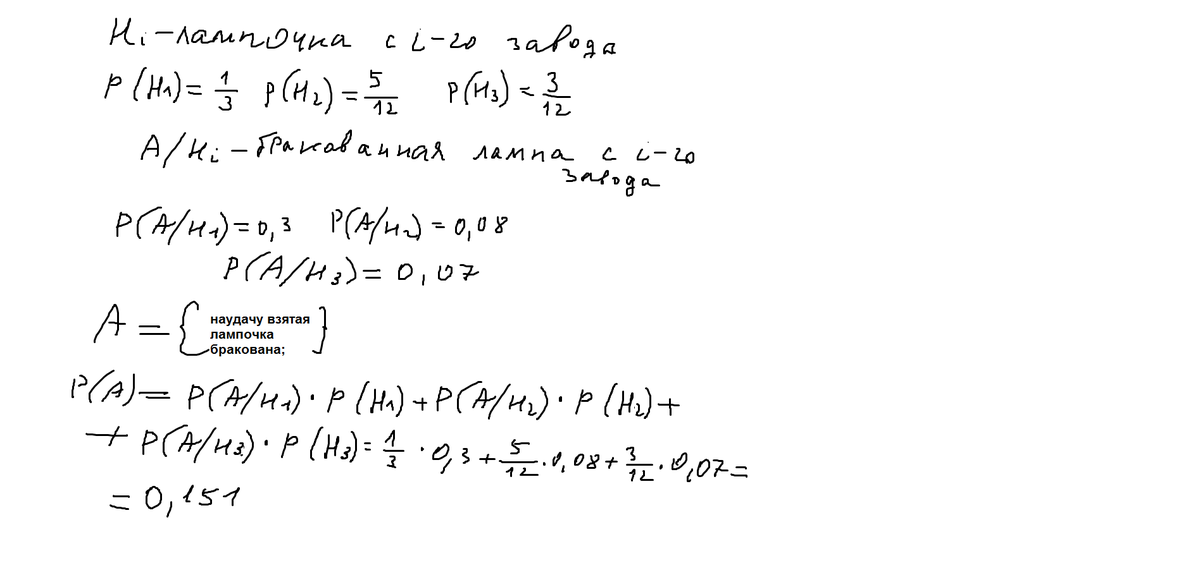 Hi - лампочка с i-го завода
P(H1) = 1/3 P(H2) = 5/12 P(H3) = 3/12
A/Hi - бракованная лампа с i-го
завода
P(A/H1) = 0,3 P(A/H2) = 0,08
P(A/H3) = 0,07
A = { наудачу взятая
лампочка
бракована; }
P(A) = P(A/H1) · P(H1) + P(A/H2) · P(H2) +
+ P(A/H3) · P(H3) = 1/3 · 0,3 + 5/12 · 0,08 + 3/12 · 0,07 =
= 0,151